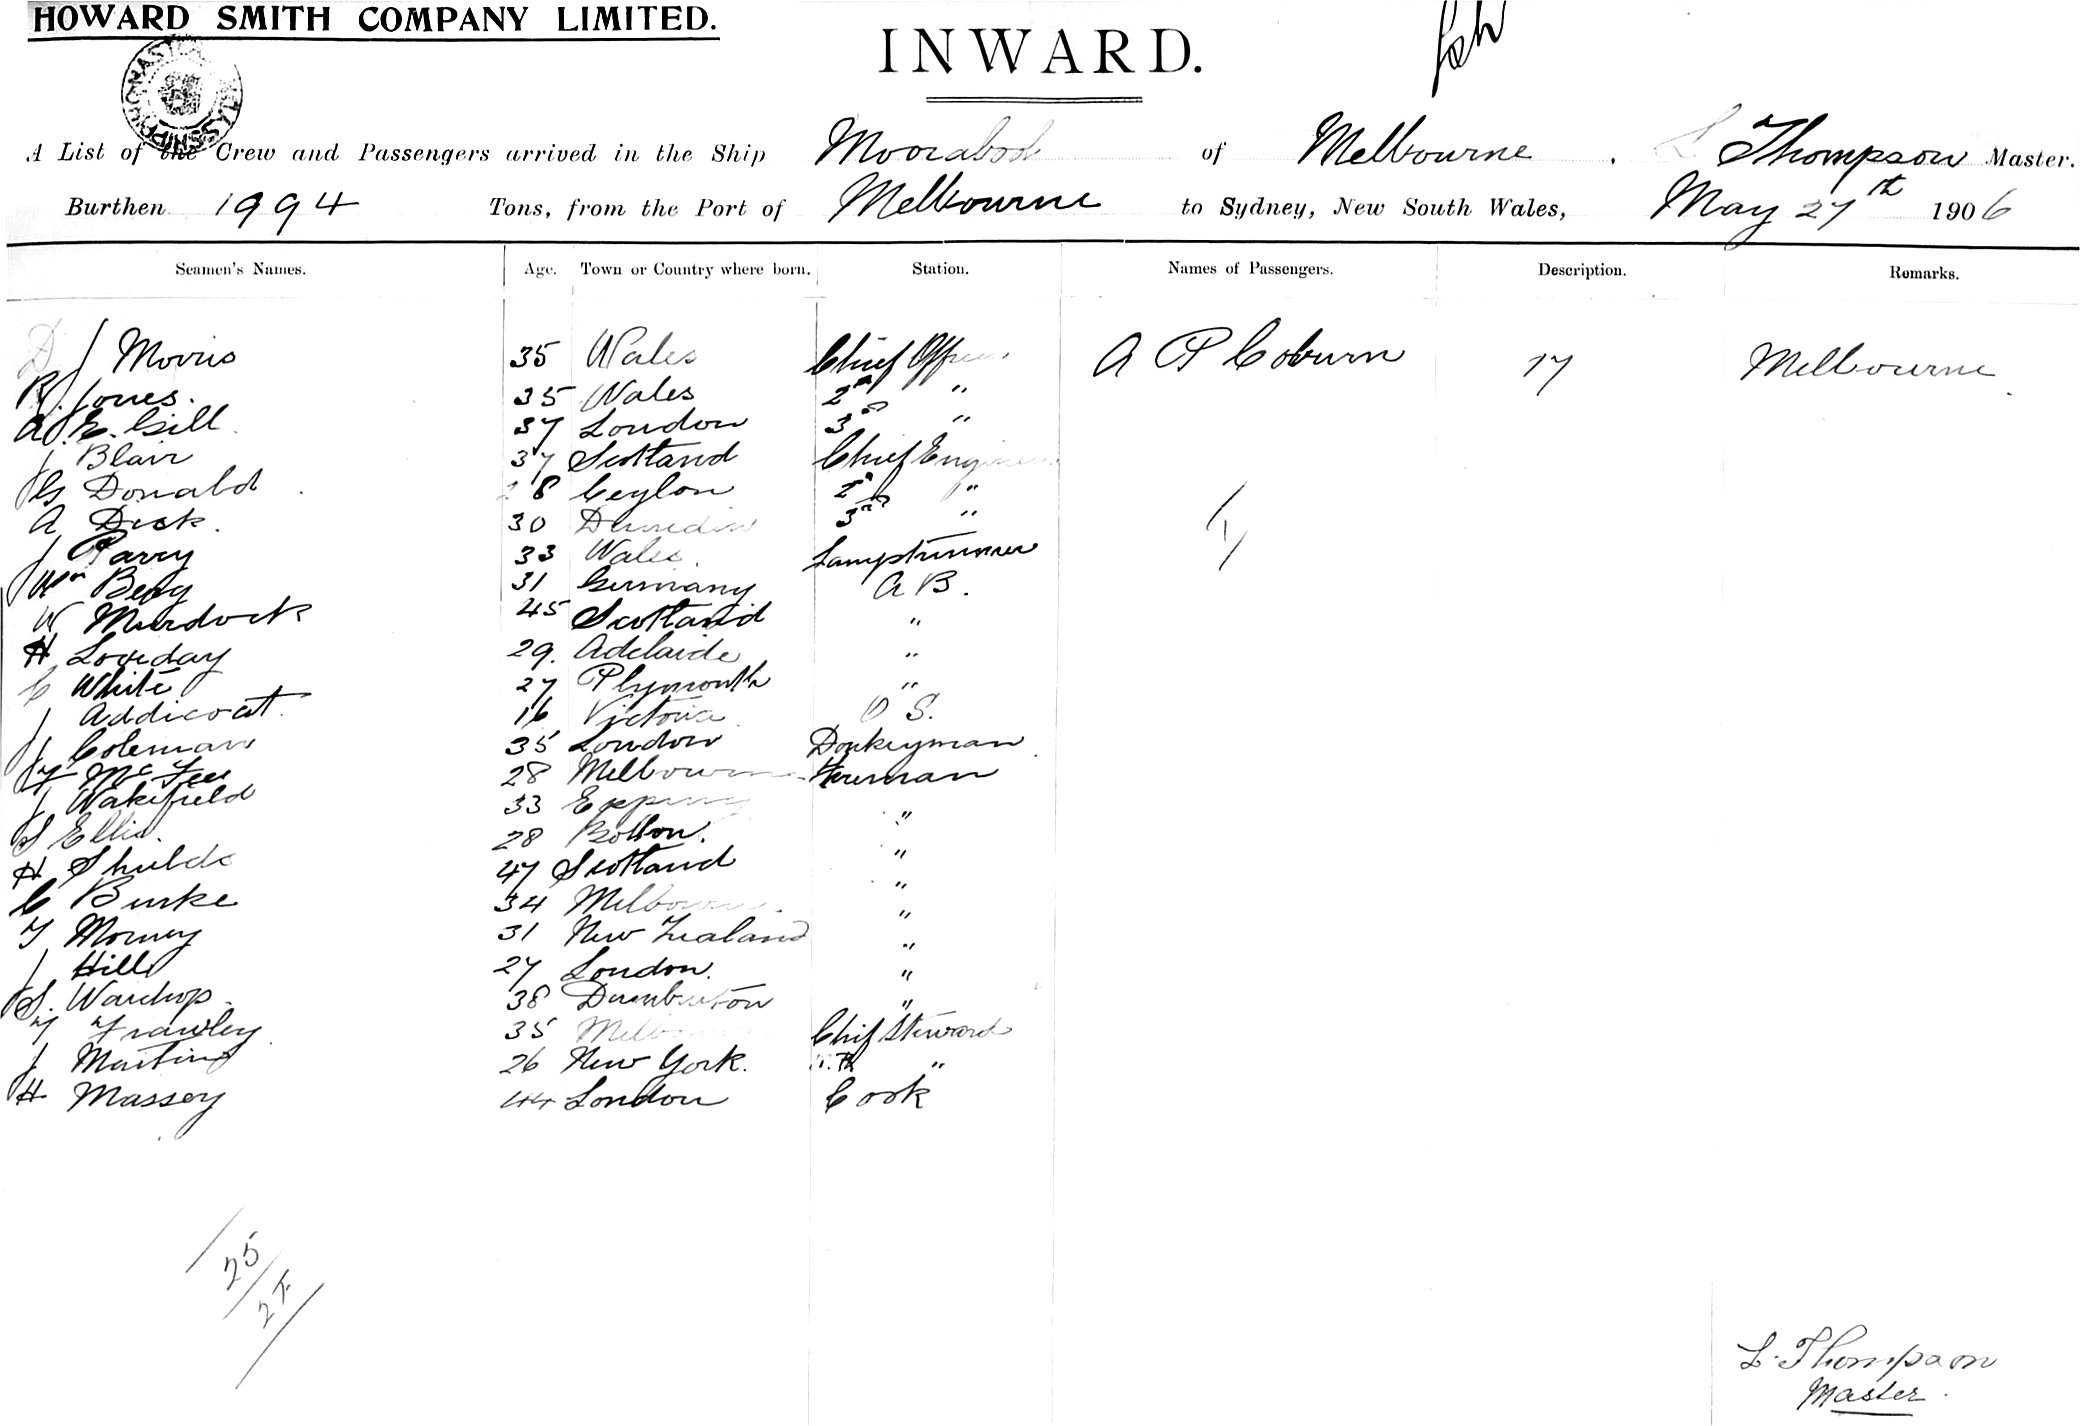 HOWARD SMITH COMPANY LIMITED.
INWARD.
A List of the Crew and Passengers arrived in the Ship Moorabool of Melbourne. L Thompson Master.
Burthen 1994 Tons, from the Port of Melbourne to Sydney, New South Wales, May 27th 1906
Seamen's Names. Age. Town or Country where born. Station. Names of Passengers. Description. Remarks.
D J Morris 35 Wales Chief Officer A P Coburn 17 Melbourne
R. Jones. 35 Wales 2nd "
A. E. Gill 37 London 3rd "
J Blair 37 Scotland Chief Engineer
G Donald 28 Ceylon 2nd "
A Dick. 30 Dunedin 3rd " 1
J Parry 33 Wales. Lamptrimmer
Wm Berg 31 Germany A B.
W Murdock 45 Scotland "
H Loveday 29. Adelaide "
C White 27 Plymouth "
J Addicoat. 16 Victoria O S.
J Coleman 35 London Donkeyman
F McFee 28 Melbourne Fireman
J Wakefield 33 Epping "
S Ellis. 28 Bolton. "
H Shields 47 Scotland "
C Burke 34 Melbourne "
T Morney 31 New Zealand "
J Hill 27 London. "
S. Wardrop 38 Dumbarton "
F Frawley 35 Melb Chief Steward
J Martin 26 New York. "
H Massey 44 London Cook
25
24
L. Thompson
Master.